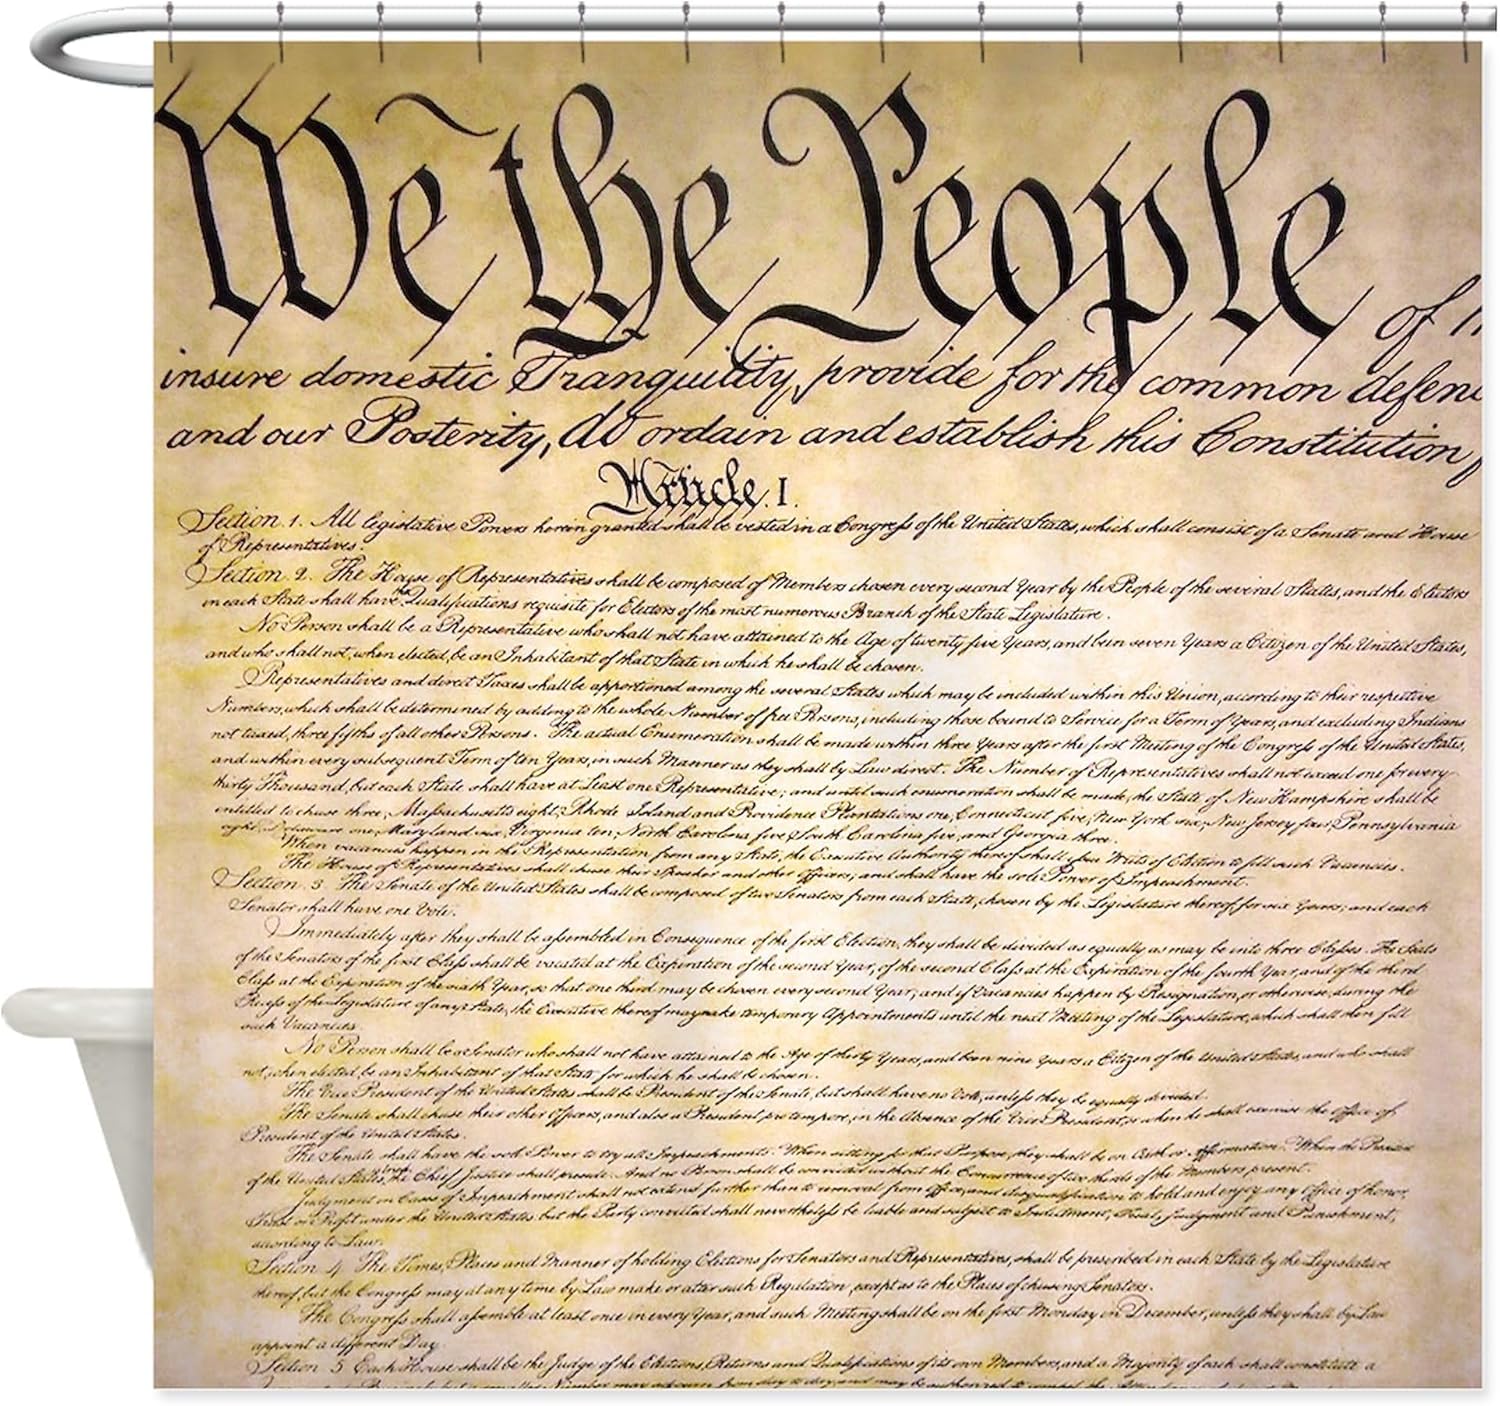 We the People of th
insure domestic Tranquility, provide for the common defenc
and our Posterity, do ordain and establish this Constitution f
Article. I.
Section. 1. All legislative Powers herein granted shall be vested in a Congress of the United States, which shall consist of a Senate and House
of Representatives.
Section. 2. The House of Representatives shall be composed of Members chosen every second Year by the People of the several States, and the Electors
in each State shall have the Qualifications requisite for Electors of the most numerous Branch of the State Legislature.
No Person shall be a Representative who shall not have attained to the Age of twenty five Years, and been seven Years a Citizen of the United States,
and who shall not, when elected, be an Inhabitant of that State in which he shall be chosen.
Representatives and direct Taxes shall be apportioned among the several States which may be included within this Union, according to their respective
Numbers, which shall be determined by adding to the whole Number of free Persons, including those bound to Service for a Term of Years, and excluding Indians
not taxed, three fifths of all other Persons. The actual Enumeration shall be made within three Years after the first Meeting of the Congress of the United States,
and within every subsequent Term of ten Years, in such Manner as they shall by Law direct. The Number of Representatives shall not exceed one for every
thirty Thousand, but each State shall have at Least one Representative; and until such enumeration shall be made, the State of New Hampshire shall be
entitled to chuse three, Massachusetts eight, Rhode Island and Providence Plantations one, Connecticut five, New York six, New Jersey four, Pennsylvania
eight, Delaware one, Maryland six, Virginia ten, North Carolina five, South Carolina five, and Georgia three.
When vacancies happen in the Representation from any State, the Executive Authority thereof shall issue Writs of Election to fill such Vacancies.
The House of Representatives shall chuse their Speaker and other Officers; and shall have the sole Power of Impeachment.
Section. 3. The Senate of the United States shall be composed of two Senators from each State, chosen by the Legislature thereof, for six Years; and each
Senator shall have one Vote.
Immediately after they shall be assembled in Consequence of the first Election, they shall be divided as equally as may be into three Classes. The Seats
of the Senators of the first Class shall be vacated at the Expiration of the second Year, of the second Class at the Expiration of the fourth Year, and of the third
Class at the Expiration of the sixth Year, so that one third may be chosen every second Year; and if Vacancies happen by Resignation, or otherwise, during the
Recess of the Legislature of any State, the Executive thereof may make temporary Appointments until the next Meeting of the Legislature, which shall then fill
such Vacancies.
No Person shall be a Senator who shall not have attained to the Age of thirty Years, and been nine Years a Citizen of the United States, and who shall
not, when elected, be an Inhabitant of that State for which he shall be chosen.
The Vice President of the United States shall be President of the Senate, but shall have no Vote, unless they be equally divided.
The Senate shall chuse their other Officers, and also a President pro tempore, in the Absence of the Vice President, or when he shall exercise the Office of
President of the United States.
The Senate shall have the sole Power to try all Impeachments. When sitting for that Purpose, they shall be on Oath or Affirmation. When the President
of the United States is tried, the Chief Justice shall preside: And no Person shall be convicted without the Concurrence of two thirds of the Members present.
Judgment in Cases of Impeachment shall not extend further than to removal from Office, and disqualification to hold and enjoy any Office of honor,
Trust or Profit under the United States: but the Party convicted shall nevertheless be liable and subject to Indictment, Trial, Judgment and Punishment,
according to Law.
Section. 4. The Times, Places and Manner of holding Elections for Senators and Representatives, shall be prescribed in each State by the Legislature
thereof; but the Congress may at any time by Law make or alter such Regulations, except as to the Places of chusing Senators.
The Congress shall assemble at least once in every Year, and such Meeting shall be on the first Monday in December, unless they shall by Law
appoint a different Day.
Section. 5. Each House shall be the Judge of the Elections, Returns and Qualifications of its own Members, and a Majority of each shall constitute a